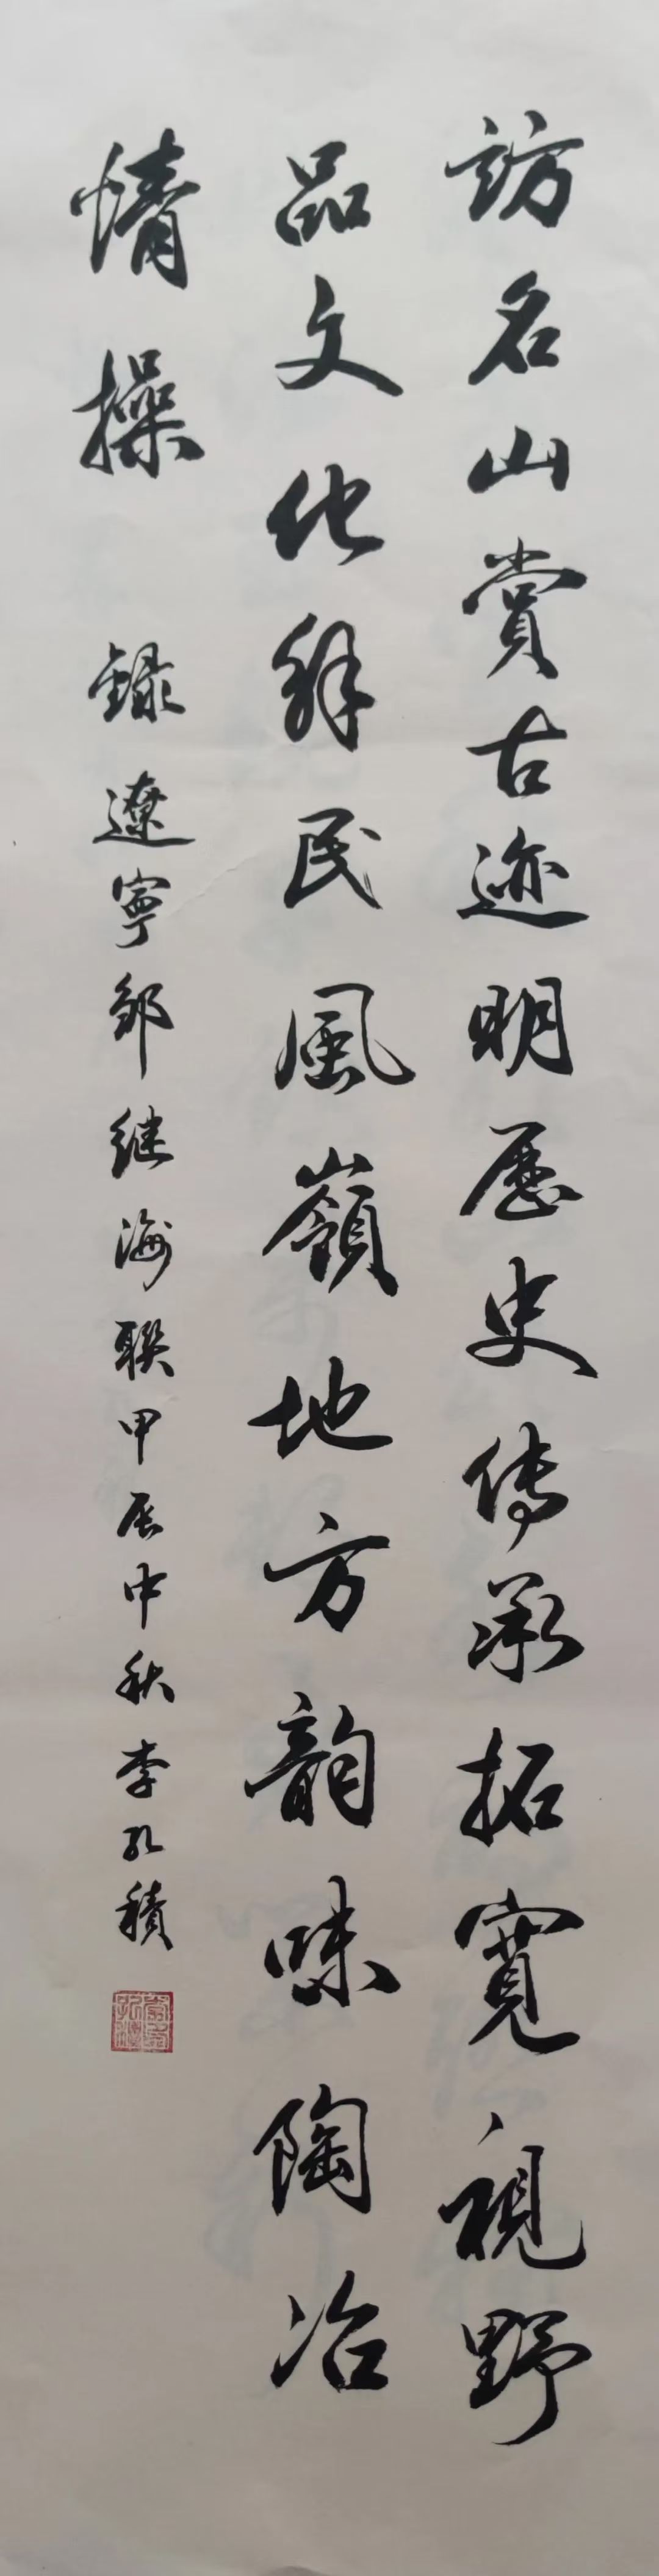 訪名山賞古迹明歷史传承拓寬視野
品文化解民風嶺地方韵味陶冶
情操 録遼寧邹继海联甲辰中秋李孔積